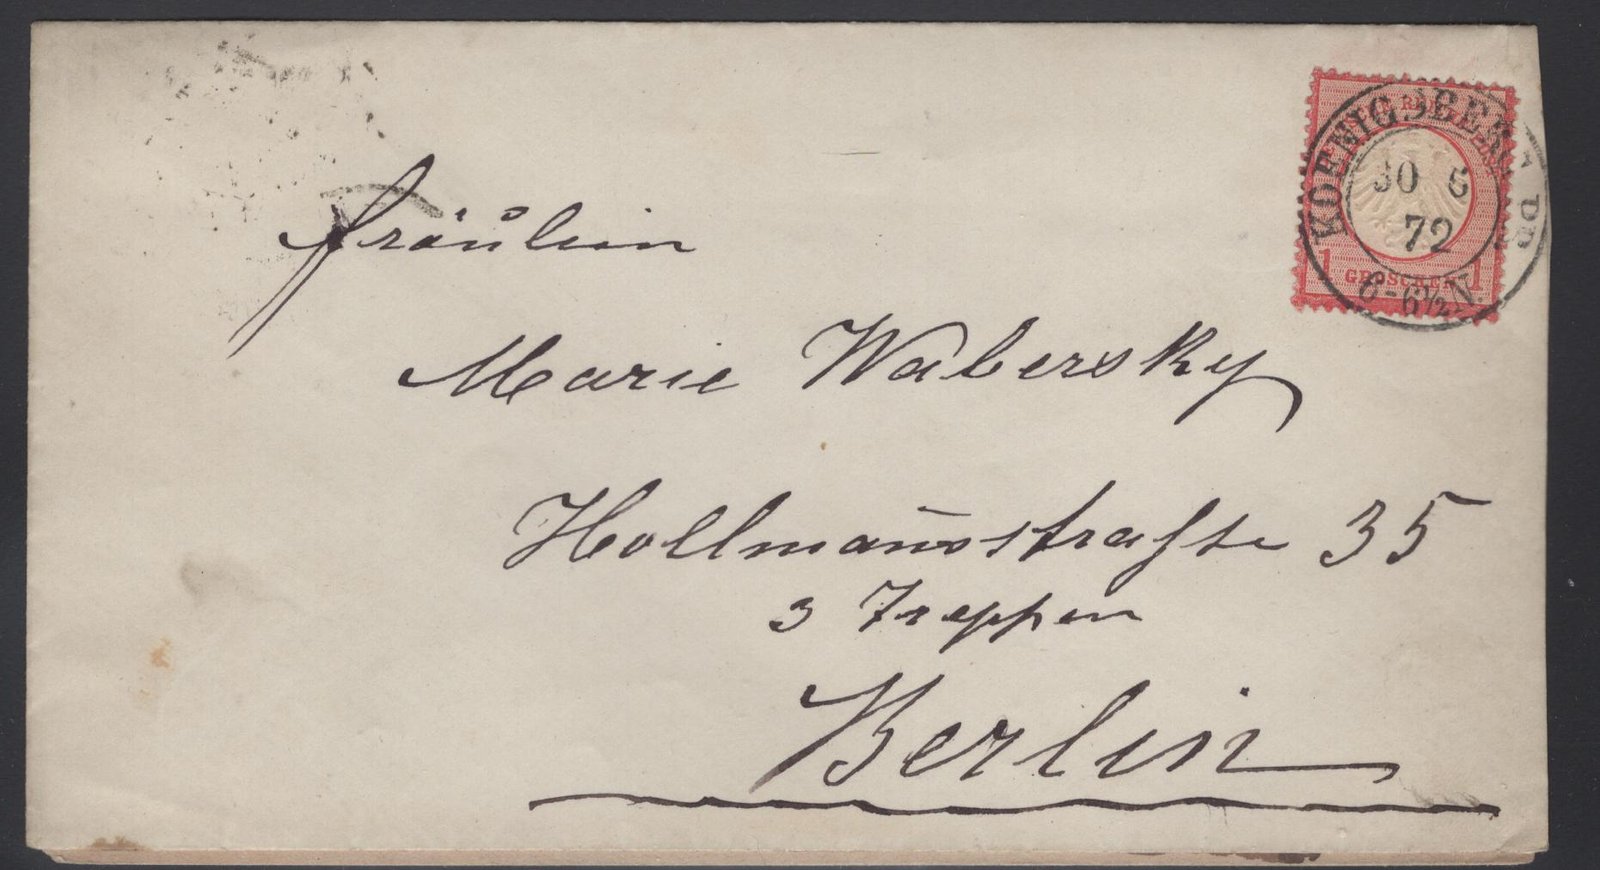 KOENIGSBERG
30 5
72
6-6½N.
1 GROSCHEN 1
Fräulein
Marie Wabersky
Hollmannsstraße 35
3 Treppen
Berlin